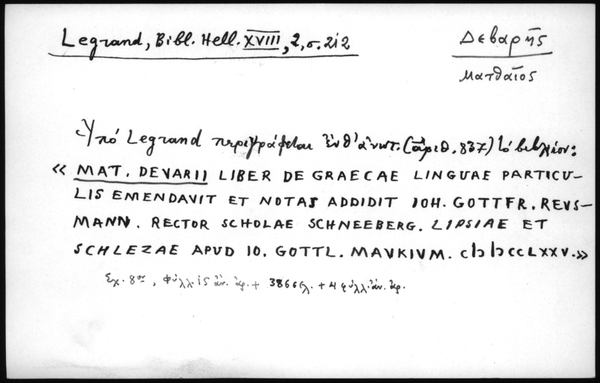 Legrand, Bibl. Hell. XVIII, 2, σ. 212
Δεβαρῆς
Ματθαῖος
Ὑπό Legrand περιγράφεται ἔνθ' ἀνωτ. (ἀριθ. 837) τό βιβλίον:
« MAT. DEVARII LIBER DE GRAECAE LINGUAE PARTICU-
LIS EMENDAVIT ET NOTAS ADDIDIT IOH. GOTTFR. REUS-
MANN. RECTOR SCHOLAE SCHNEEBERG. LIPSIAE ET
SCHLEZAE APUD IO. GOTTL. MAUKIUM. cIↃ IↃccLXXV.»
Σχ. 8ον, φύλλ. 15 ἄν. ἀρ. + 386 σελ. + 4 φύλλ. ἄν. ἀρ.